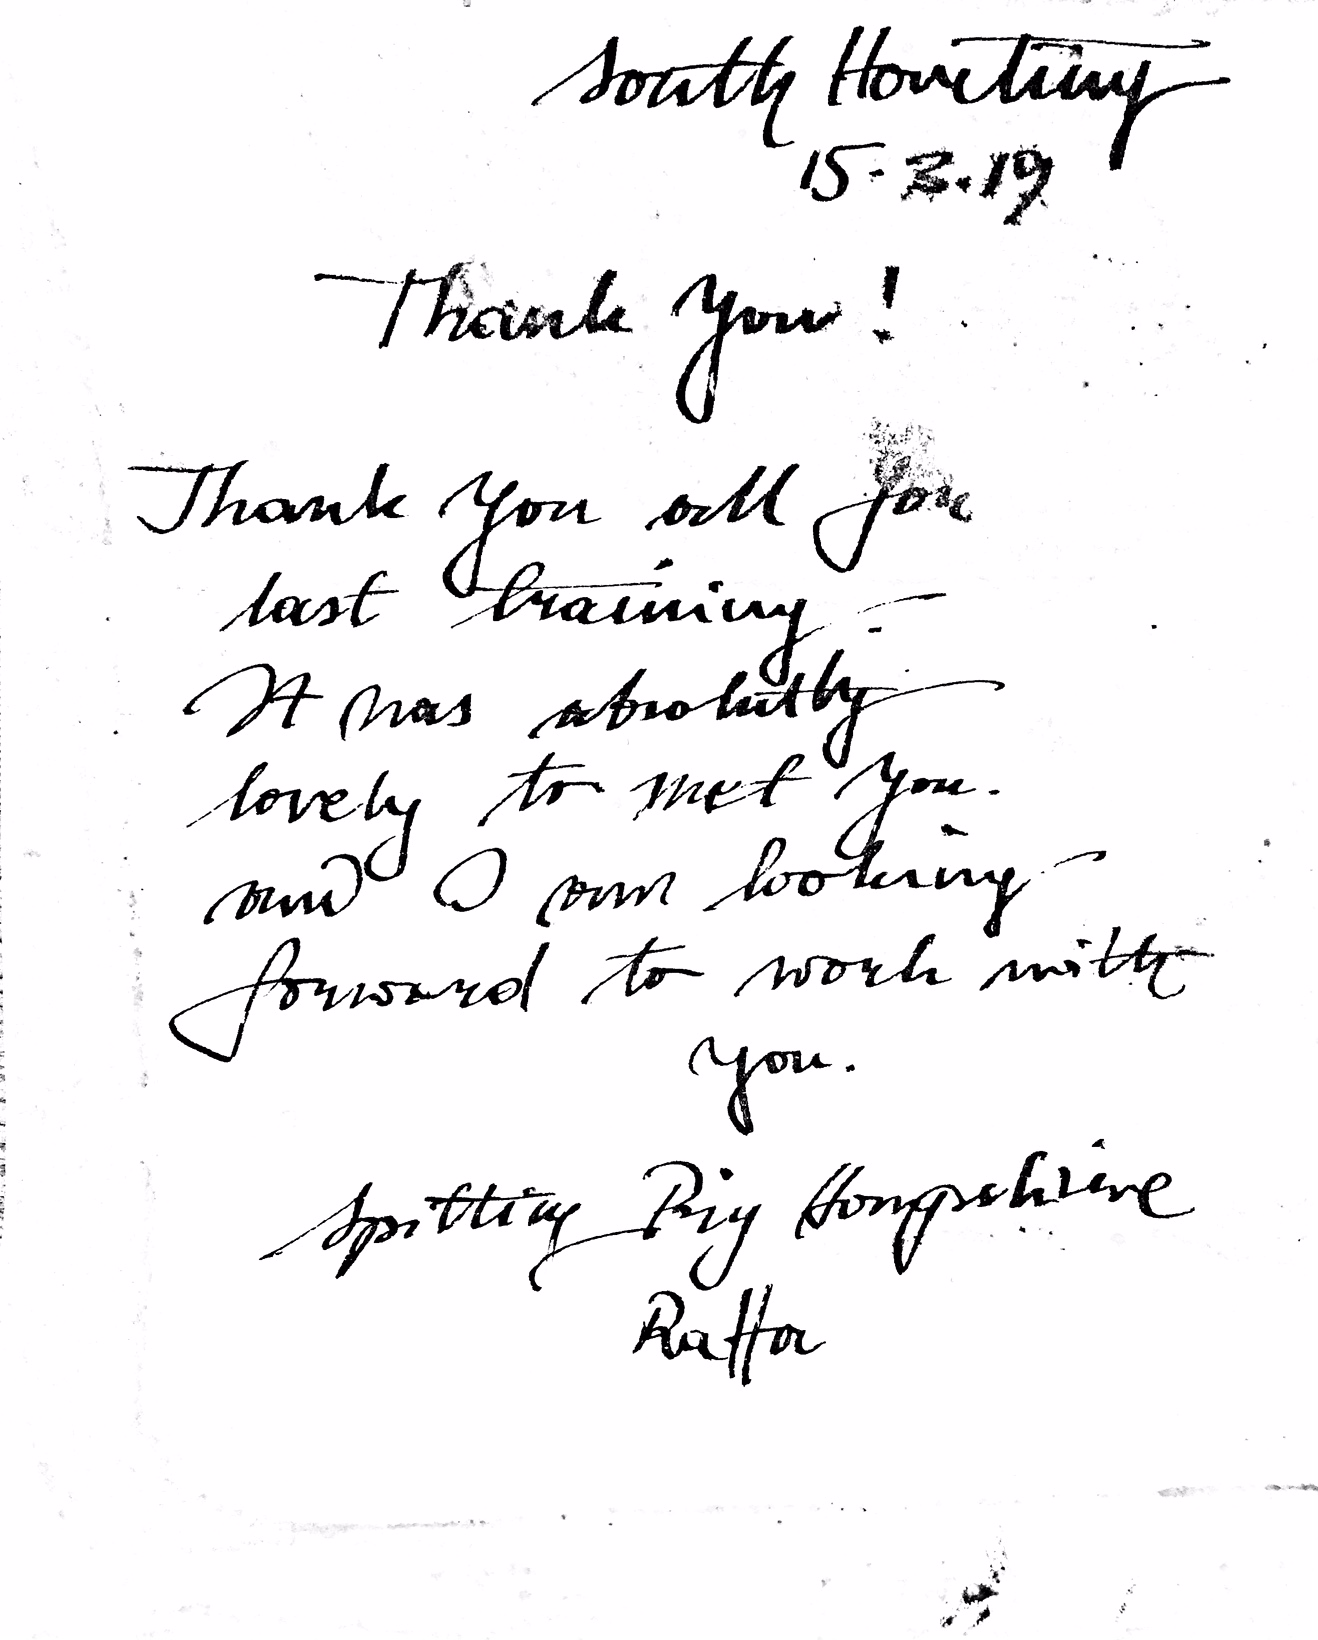 South Hareting
15.3.19
Thank You!
Thank You all for
last training.
It was absolutly
lovely to met you.
and I am looking
forward to work with
you.
Spitting Pig Hampshire